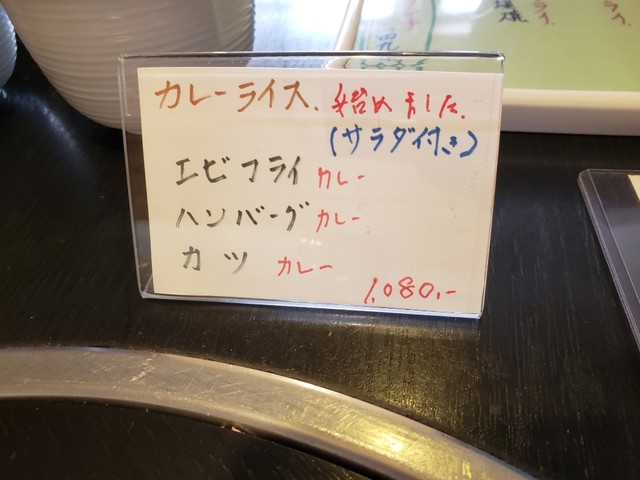 カレーライス. 始めました.
(サラダ付き)
エビフライ カレー
ハンバーグ カレー
カツ カレー
1,080.-